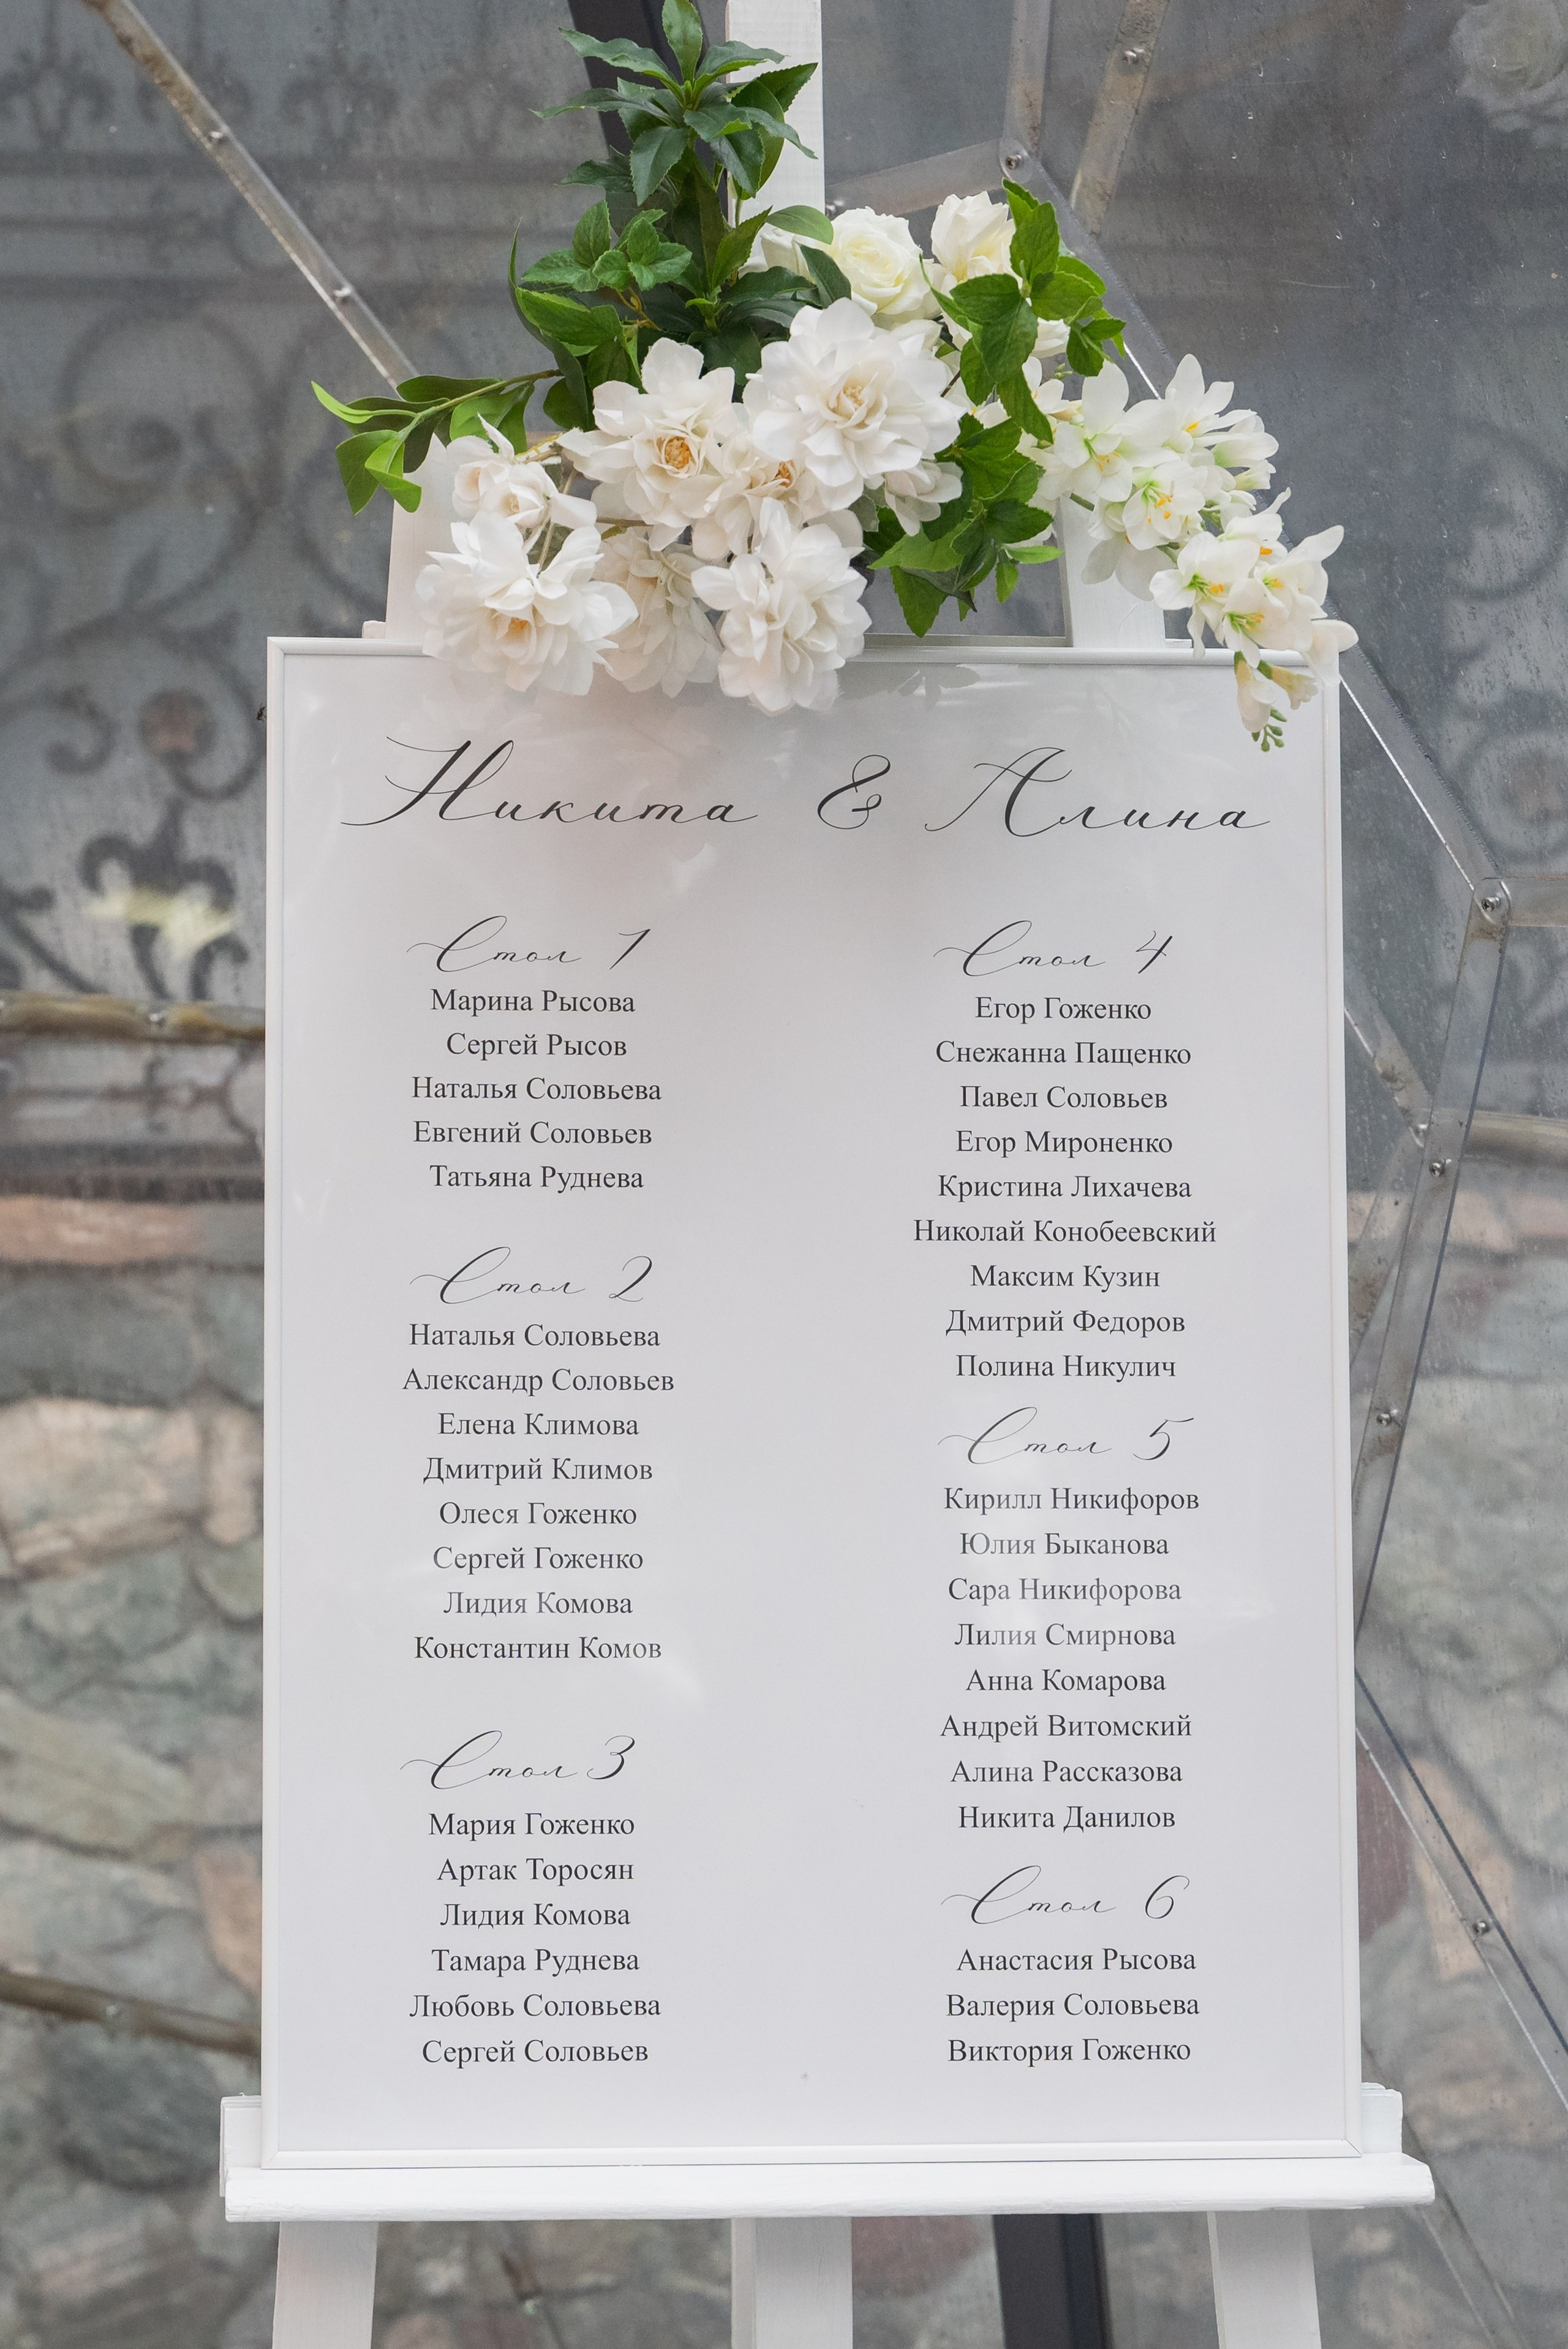 Никита & Алина
Стол 1
Марина Рысова
Сергей Рысов
Наталья Соловьева
Евгений Соловьев
Татьяна Руднева
Стол 2
Наталья Соловьева
Александр Соловьев
Елена Климова
Дмитрий Климов
Олеся Гоженко
Сергей Гоженко
Лидия Комова
Константин Комов
Стол 3
Мария Гоженко
Артак Торосян
Лидия Комова
Тамара Руднева
Любовь Соловьева
Сергей Соловьев
Стол 4
Егор Гоженко
Снежанна Пащенко
Павел Соловьев
Егор Мироненко
Кристина Лихачева
Николай Конобеевский
Максим Кузин
Дмитрий Федоров
Полина Никулич
Стол 5
Кирилл Никифоров
Юлия Быканова
Сара Никифорова
Лилия Смирнова
Анна Комарова
Андрей Витомский
Алина Рассказова
Никита Данилов
Стол 6
Анастасия Рысова
Валерия Соловьева
Виктория Гоженко